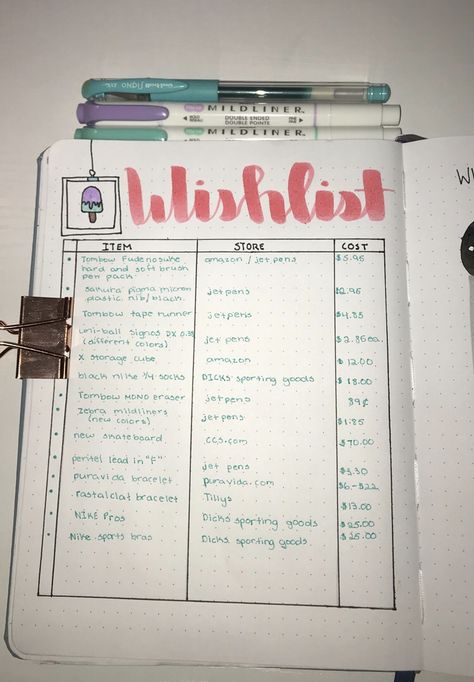 uni-ball SIGNO
MILDLINER™
DOUBLE ENDED
DOUBLE POINTE
MILDLINER™
DOUBLE ENDED
DOUBLE POINTE
Wishlist
ITEM STORE COST
Tombow Fudenosuke amazon / jet pens $5.95
hard and soft brush
pen pack
sakura pigma micron jetpens $2.95
plastic nib/black
Tombow tape runner jetpens $4.85
uni-ball signos DX 0.38 jet pens $2.85 ea.
(different colors)
X storage cube amazon $12.00
black nike 3/4 socks DICKS sporting goods $18.00
Tombow MONO eraser jetpens 89¢
Zebra mildliners jetpens $1.85
(new colors)
new skateboard CCS.com $70.00
pentel lead in "F" jet pens $3.30
puravida bracelet puravida.com $6-$22
rastaclat bracelet Tillys $13.00
NIKE Pros Dicks sporting goods $25.00
Nike sports bras Dicks sporting goods $25.00